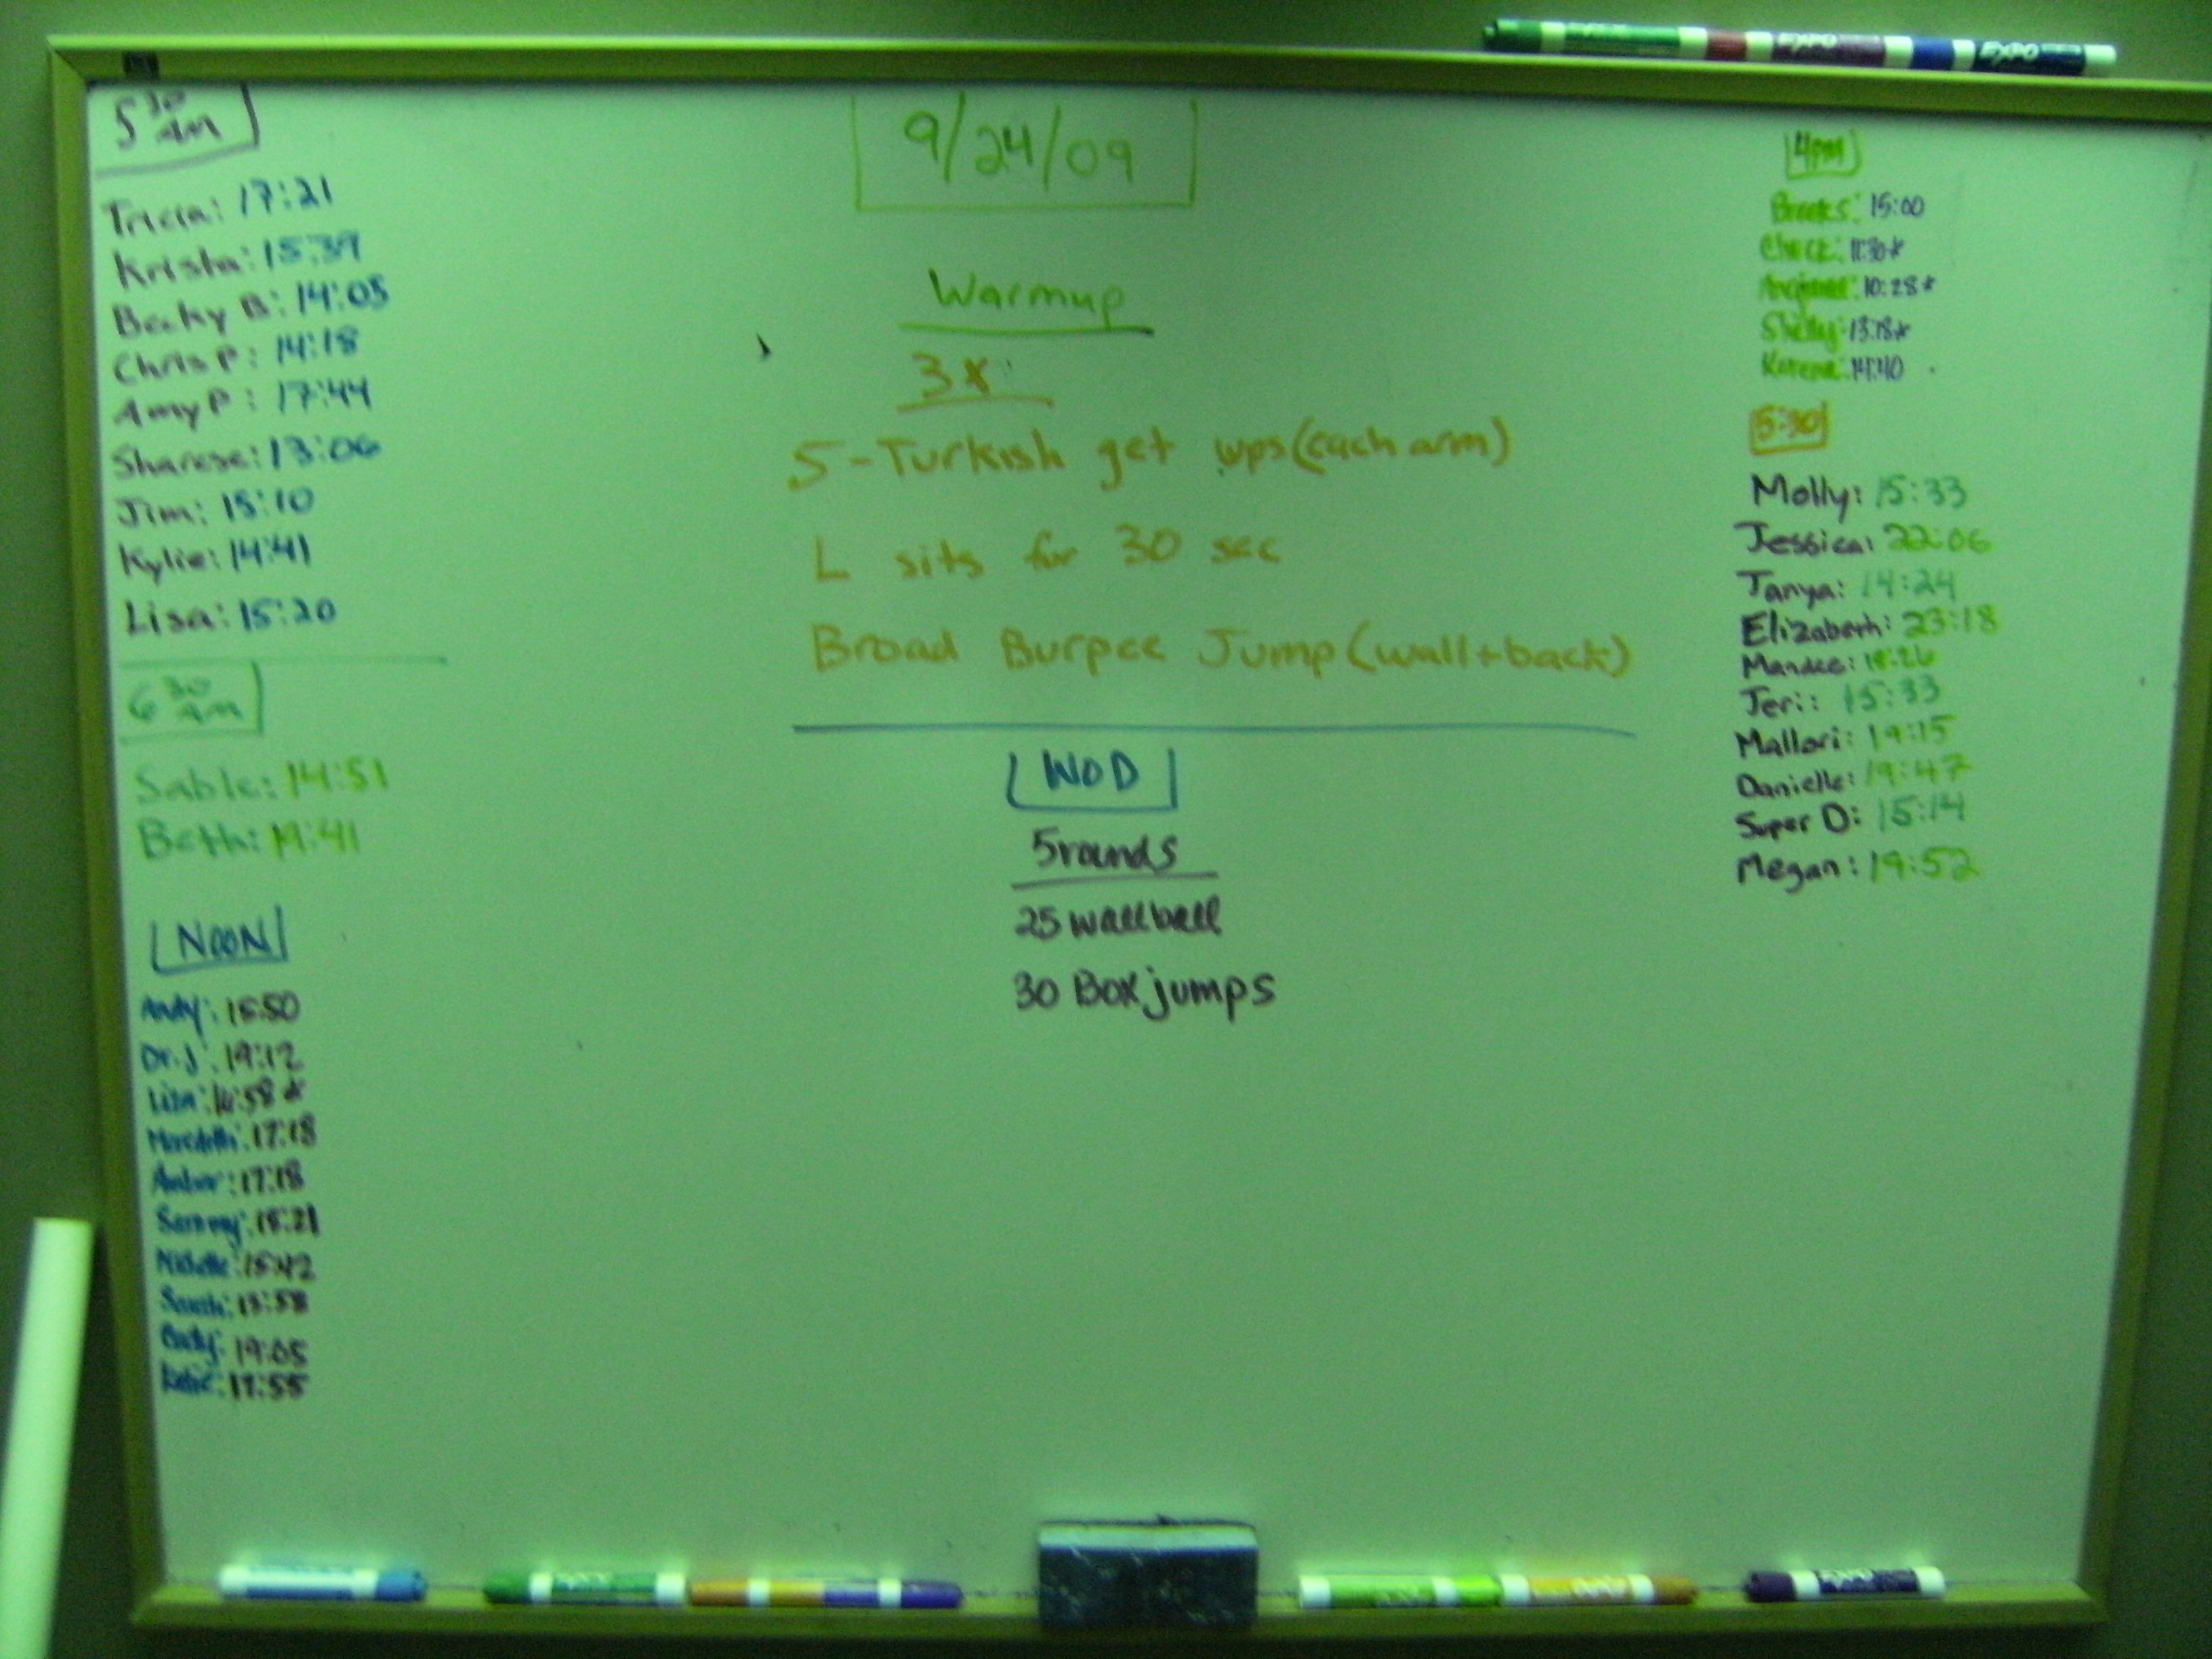 5 30 am
Tricia: 17:21
Krista: 15:39
Becky B: 14:05
Chris P: 14:18
Amy P: 17:44
Sharese: 13:06
Jim: 15:10
Kylie: 14:41
Lisa: 15:20
6 30 am
Sable: 14:51
Beth: 19:41
NOON
Andy:
Dr. J: 19:12
Meredith: 17:18
Amber: 17:18
Sammy:
Michelle: 15:42
Sarah:
Cody: 19:05
Katie: 17:55
9/24/09
Warmup
3x
5-Turkish get ups (each arm)
L sits for 30 sec
Broad Burpee Jump (wall+back)
WOD
5 rounds
25 wallball
30 Box jumps
4pm
Brooks: 15:00
10:28*
Shelly: 13:18*
14:40
5:30
Molly: 15:33
Jessica: 22:06
Tanya: 14:24
Elizabeth: 23:18
Mandee:
Jeri: 15:33
Mallori: 19:15
Danielle: 19:47
Super D: 15:14
Megan: 19:52
EXPO
EXPO